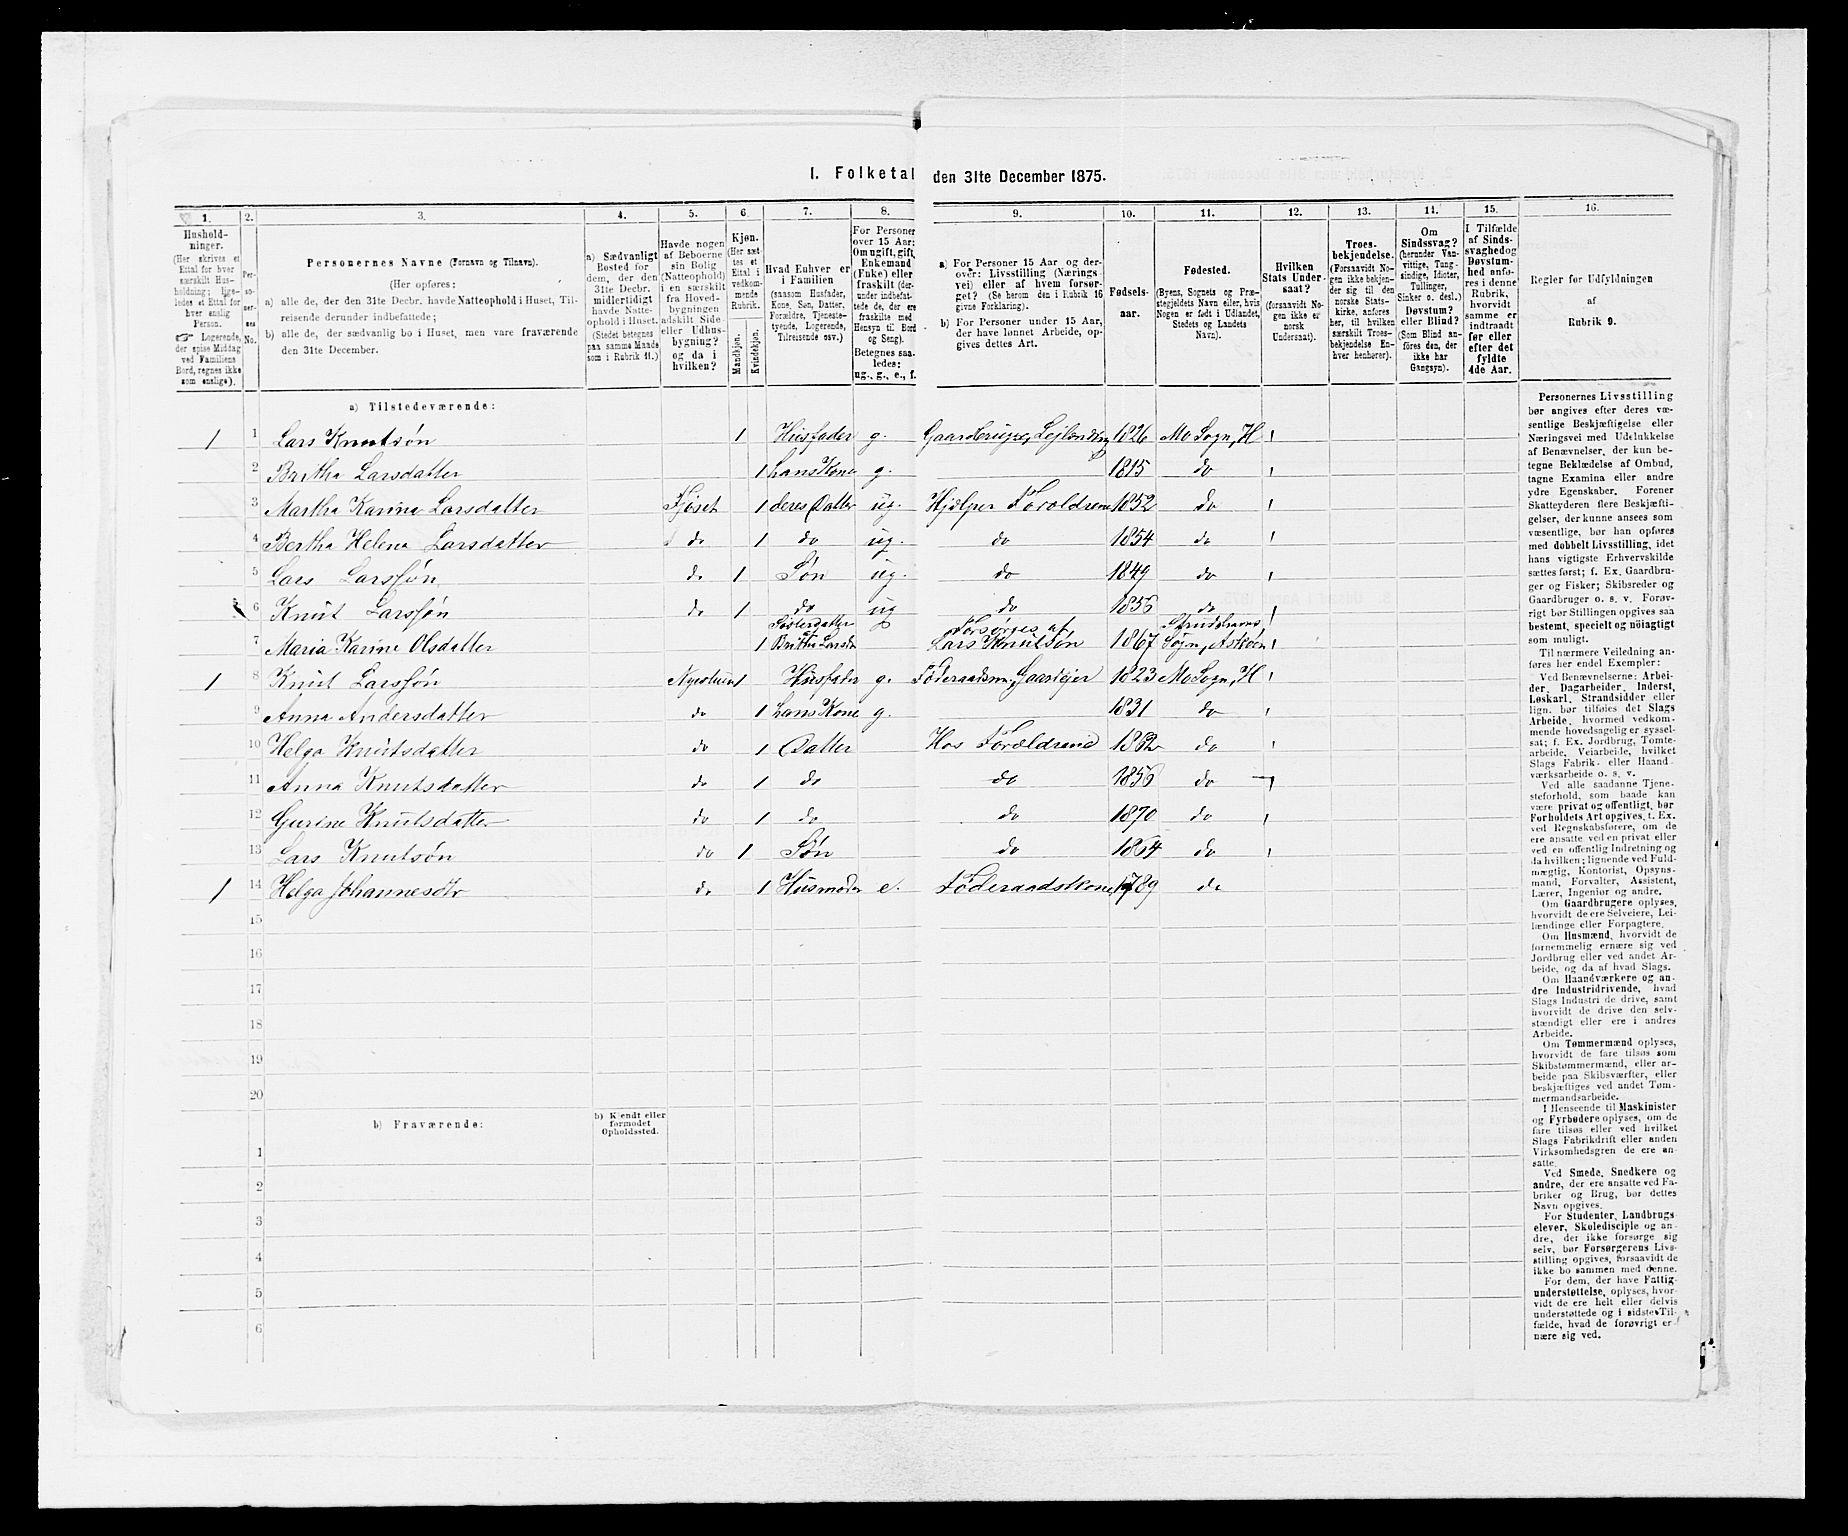 I. Folketal den 31te December 1875.
1. 2. 3. 4. 5. 6. 7. 8. 9. 10. 11. 12. 13. 14. 15. 16.
Husholdninger.
(Her skrives et
Ettal for hver
særskilt Husholdning; ligeledes
et Ettal for
hver enslig
Person.
☞ Logerende,
der spise Middag
ved Familiens
Bord, regnes ikke
som enslige).
Personernes No.
Personernes Navne (Fornavn og Tilnavn).
(Her opføres:
a) alle de, der den 31te Decbr. havde Natteophold i Huset, Tilreisende
derunder indbefattede;
b) alle de, der sædvanlig bo i Huset, men vare fraværende
den 31te December.
a) Sædvanligt
Bosted for
dem, der den
31te Decbr.
midlertidigt
havde Natteophold
i Huset.
(Stedet betegnes
paa samme Maade
som i Rubrik 11.)
Havde nogen
af Beboerne
sin Bolig
(Natteophold)
i en særskilt
fra Hovedbygningen
adskilt Side-
eller Udhusbygning?
og da i
hvilken?
Kjøn.
(Her sættes
et
Ettal i
vedkommende
Rubrik.
Mandkjøn.
Kvindekjøn.
Hvad Enhver er
i Familien
(saasom Husfader,
Kone, Søn, Datter,
Forældre, Tjenestetyende,
Logerende,
Tilreisende osv.)
For Personer
over 15 Aar:
Om ugift, gift,
Enkemand
(Enke) eller
fraskilt (derunder
indbefattede
de, der ere
fraskilte med
Hensyn til Bord
og Seng).
Betegnes saaledes:
ug., g., e., f.
a) For Personer 15 Aar og derover:
Livsstilling (Næringsvei)
eller af hvem forsørget?
(Se herom den i Rubrik 16
givne Forklaring).
b) For Personer under 15 Aar,
der have lønnet Arbeide, opgives
dettes Art.
Fødselsaar.
Fødested.
(Byens, Sognets og Præstegjeldets
Navn eller, hvis
Nogen er født i Udlandet,
Stedets og Landets
Navn).
Hvilken
Stats Undersaat?
(forsaavidt Nogen
ikke er
norsk
Undersaat).
Troesbekjendelse.
(Forsaavidt Nogen
ikke bekjender
sig til den
norske Statskirke,
anføres
her, til hvilken
særskilt Troesbekjendelse
Enhver
henhører).
Om
Sindssvag?
(herunder Vanvittige,
Tungsindige,
Idioter,
Sinker o. desl.)
Døvstum?
eller Blind?
(Som Blind anføres
den, der
ikke har
Gangsyn).
I Tilfælde
af Sindssvaghed
og
Døvstumhed
anføres
i denne
Rubrik,
hvorvidt
samme er
indtraadt
før eller
efter det
fyldte
4de Aar.
Regler for Udfyldningen
af
Rubrik 9.
a) Tilstedeværende:
1 1 Lars Knutsøn 1 Husfader g. Gaardbruger, Lejlending 1826 Mo Sogn, H
2 Britha Larsdatter 1 hans Kone g. 1815 do
3 Martha Karina Larsdatter Fjöset 1 deres Datter ug. Hjelper Foroldrene 1852 do
4 Bertha Helena Larsdatter do 1 do ug. do 1854 do
5 Lars Larssøn do 1 Søn ug. do 1849 do
6 Knut Larssøn do 1 do ug do 1856 do
7 Maria Karine Olsdatter 1 Søsterdatter Britha Larsd. Forsørges af Lars Knutsøn 1867 Sogn, Askvoll
1 8 Knut Larssøn 1 Husfader g. Føderaadsm., Gaardejer 1823 Mo Sogn, H
9 Anna Andersdatter do 1 hans Kone g. 1831 do
10 Helga Knutsdatter do 1 Datter Hos Forældrene 1862 do
11 Anna Knutsdatter do 1 do do 1856 do
12 Gurine Knutsdatter do 1 do do 1870 do
13 Lars Knutsøn do 1 Søn do 1864 do
1 14 Helga Johannesdtr do 1 Husmoder e. Føderaadskone 1789 do
15
16
17
18
19
20
b) Fraværende:
b) Kjendt eller
formodet
Opholdssted.
1
2
3
4
5
6
Personernes Livsstilling
bør angives efter deres væsentlige
Beskjæftigelse eller
Næringsvei med Udelukkelse
af Benævnelser, der kun betegne
Beklædelse af Ombud,
tagne Examina eller andre
ydre Egenskaber. Forener
Skatteyderen flere Beskjæftigelser,
der kunne ansees som
væsentlige, bør han opføres
med dobbelt Livsstilling, idet
hans vigtigste Erhvervskilde
sættes først; f. Ex. Gaardbruger
og Fisker; Skibsreder og
Gaardbruger o. s. v. Forøvrigt
bør Stillingen opgives saa
bestemt, specielt og nøiagtigt
som muligt.
Til nærmere Veiledning anføres
her endel Exempler:
Ved Benævnelserne: Arbeider,
Dagarbeider, Inderst,
Løskarl, Strandsidder eller
lign. bør tilføies det Slags
Arbeide, hvormed vedkommende
hovedsagelig er sysselsat;
f. Ex. Jordbrug, Tomtearbeide,
Veiarbeide, hvilket
Slags Fabrik- eller Haandværksarbeide
o. s. v.
Ved alle saadanne Tjenesteforhold,
som baade kan
være privat og offentligt, bør
Forholdets Art opgives, f. Ex.
ved Regnskabsførere, om de
ere ansatte ved en privat eller
ved en offentlig Indretning og
da hvilken; lignende ved Fuldmægtig,
Kontorist, Opsynsmand,
Forvalter, Assistent,
Lærer, Ingeniør og andre.
Om Gaardbrugere oplyses,
hvorvidt de ere Selveiere, Leilændinge
eller Forpagtere.
Om Husmænd, hvorvidt de
fornemmelig ernære sig ved
Jordbrug eller ved andet Arbeide,
og da af hvad Slags.
Om Haandværkere og andre
Industridrivende, hvad
Slags Industri de drive, samt
hvorvidt de drive den selvstændigt
eller ere i andres
Arbeide.
Om Tømmermænd oplyses,
hvorvidt de fare tilsøs som
Skibstømmermænd, eller arbeide
paa Skibsværfter, eller
beskjæftiges ved andet Tømmermandsarbeide.
I Henseende til Maskinister
og Fyrbødere oplyses, om de
fare tilsøs eller ved hvilket
Slags Fabrikdrift eller anden
Virksomhedsgren de ere ansatte.
Ved Smede, Snedkere og
andre, der ere ansatte ved Fabriker
og Brug, bør dettes
Navn opgives.
For Studenter, Landbrugselever,
Skoledisciple og andre,
der ikke forsørge sig
selv, bør Forsørgerens Livsstilling
opgives, forsaavidt de
ikke bo sammen med denne.
For dem, der have Fattigunderstøttelse,
oplyses, hvorvidt
de ere helt eller delvis
understøttede og i sidste Tilfælde,
hvad de forøvrigt ernære
sig ved.